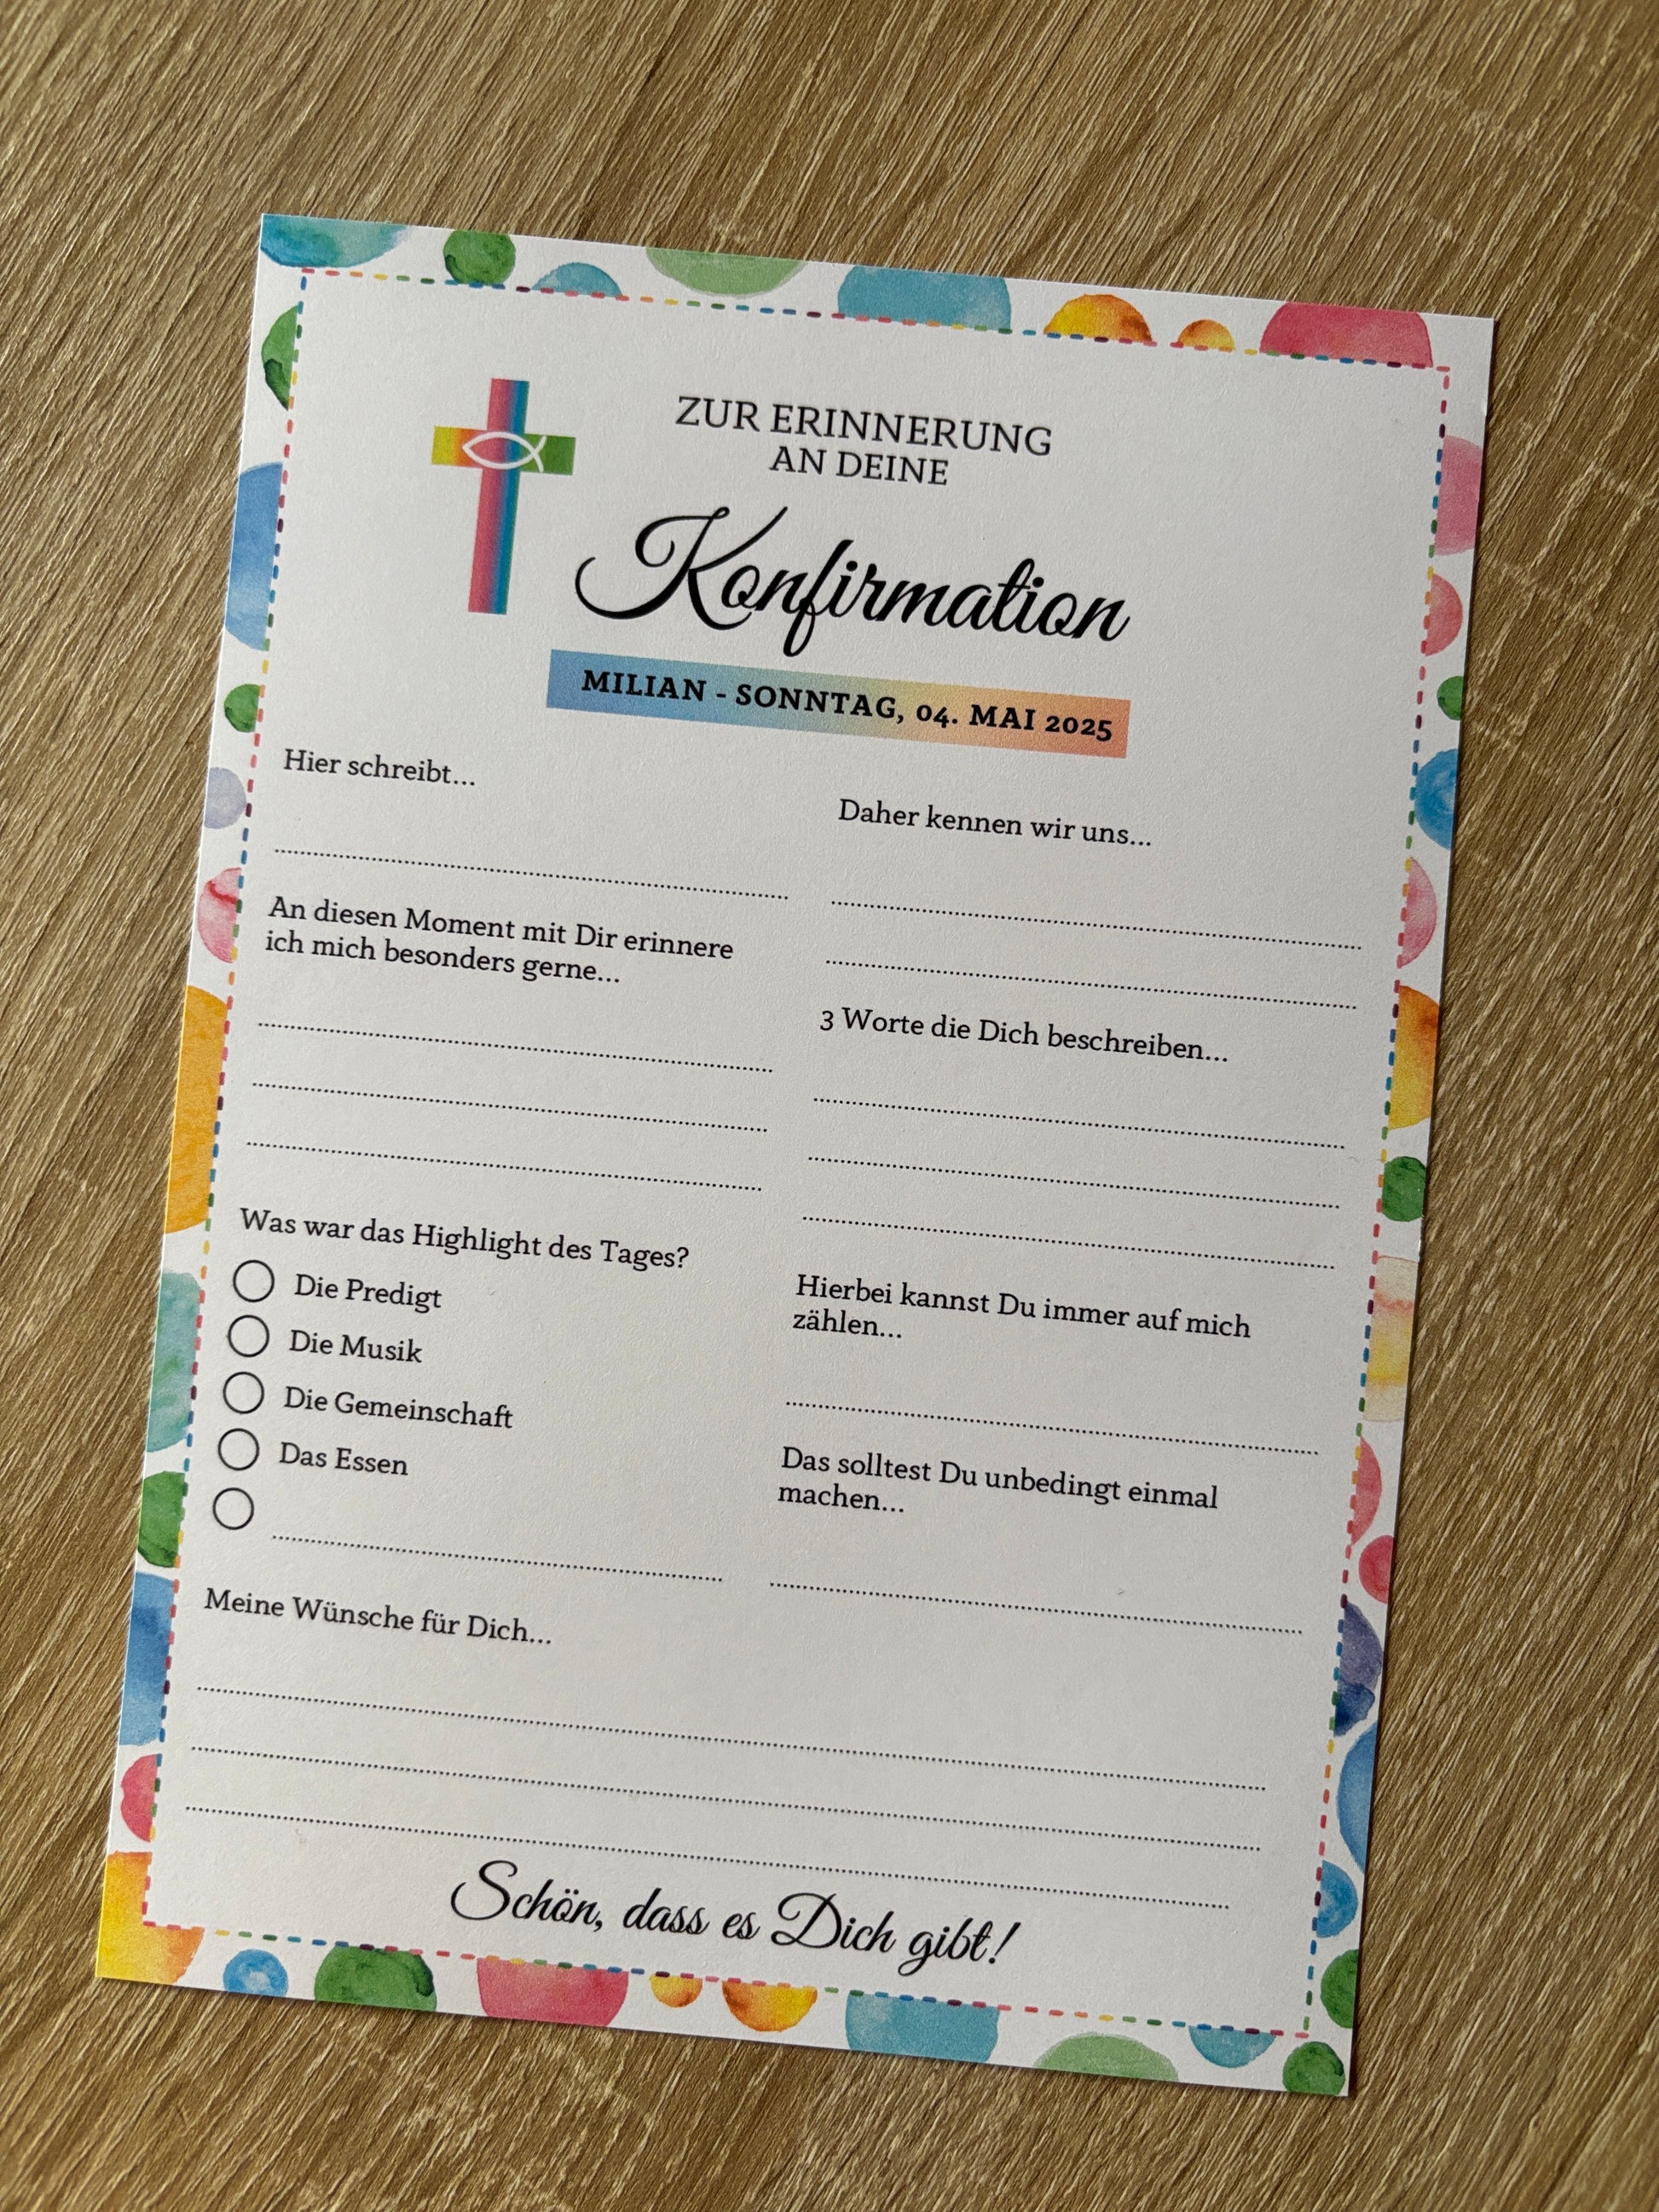 ZUR ERINNERUNG
AN DEINE
Konfirmation
MILIAN - SONNTAG, 04. MAI 2025
Hier schreibt...
An diesen Moment mit Dir erinnere
ich mich besonders gerne...
Was war das Highlight des Tages?
Die Predigt
Die Musik
Die Gemeinschaft
Das Essen
Daher kennen wir uns...
3 Worte die Dich beschreiben...
Hierbei kannst Du immer auf mich
zählen...
Das solltest Du unbedingt einmal
machen...
Meine Wünsche für Dich...
Schön, dass es Dich gibt!